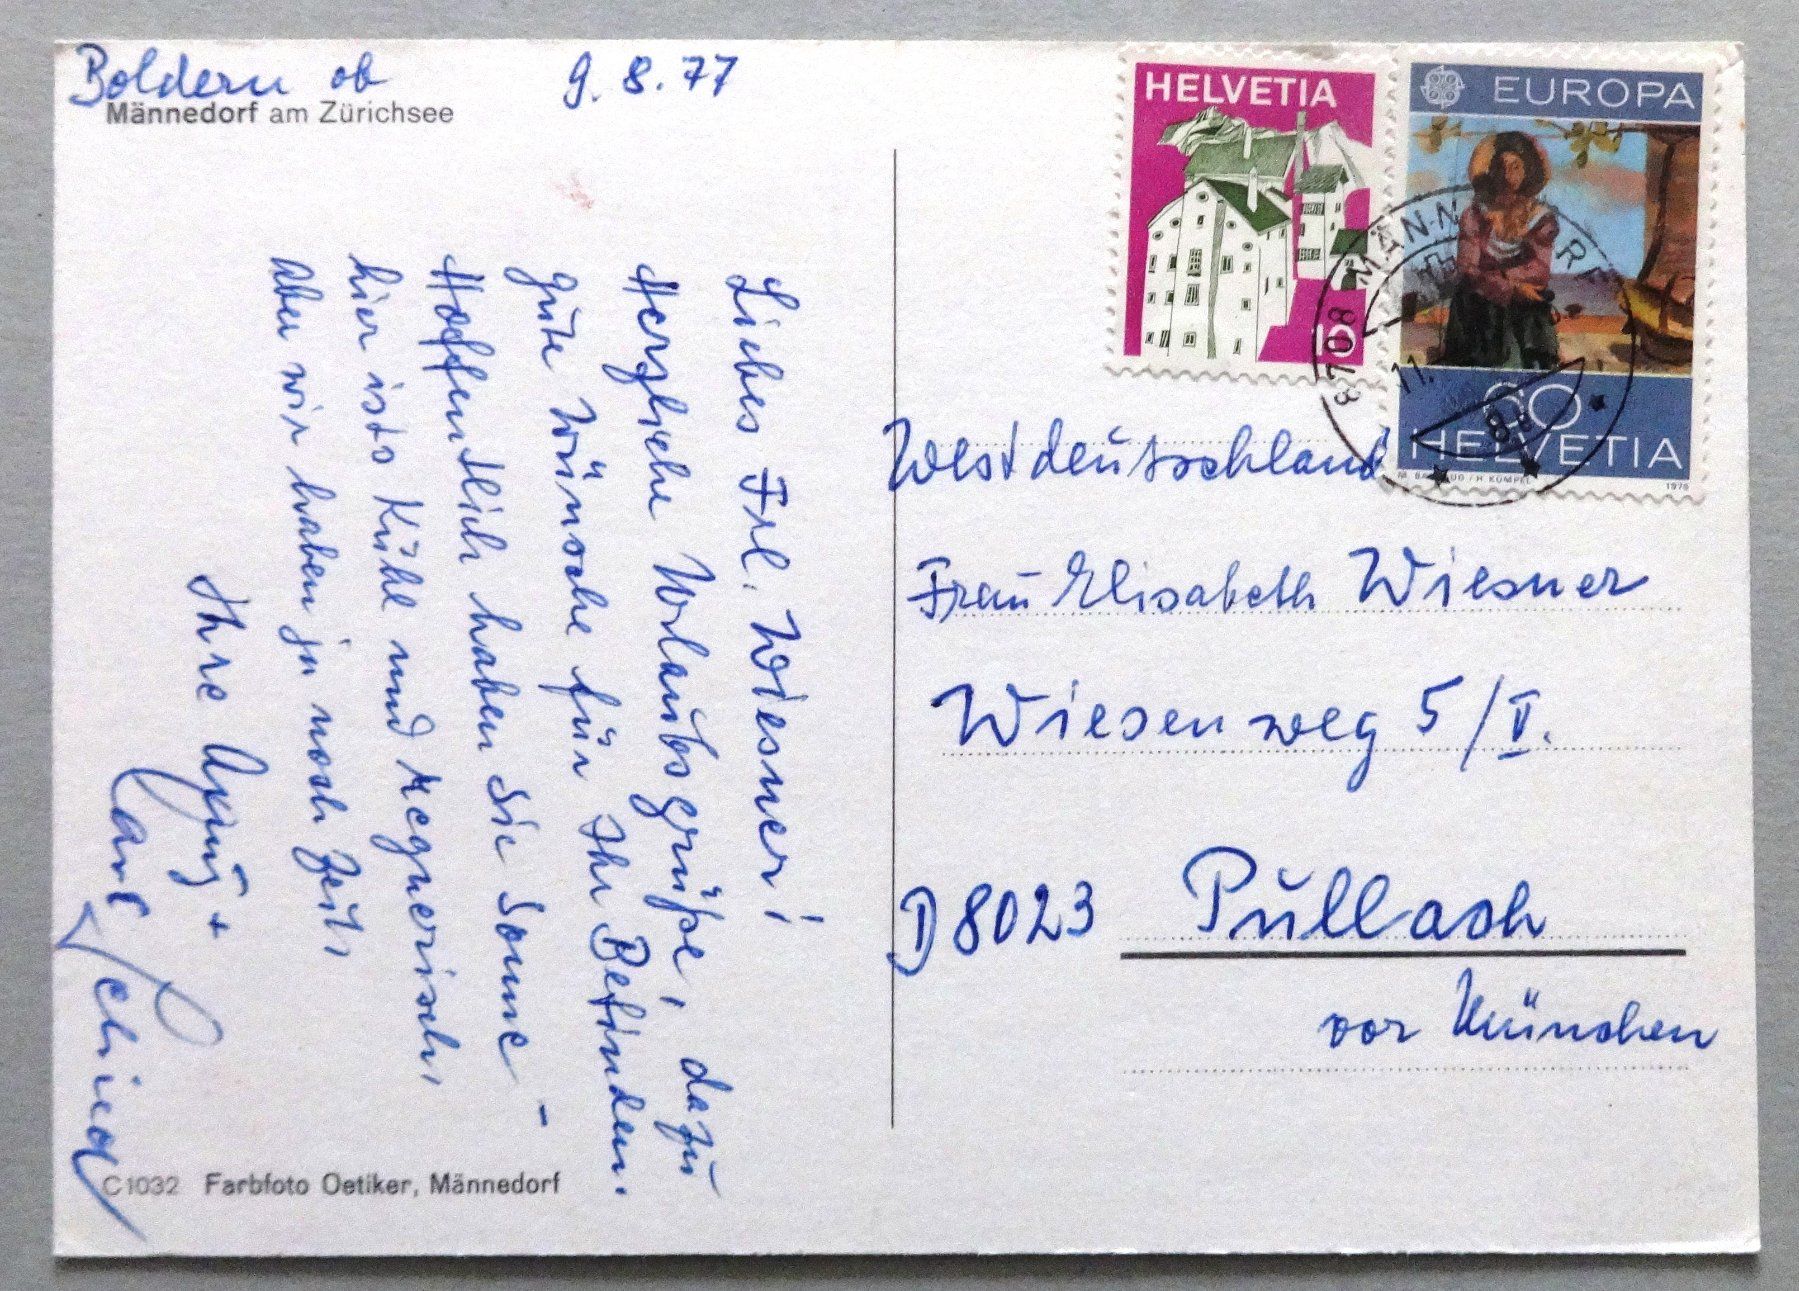 Boldern ob 9. 8. 77
Männedorf am Zürichsee
Liebes Frl. Wiesner!
Herzliche Urlaubsgrüße, dazu
gute Wünsche für Ihr Befinden.
Hoffentlich haben Sie Sonne –
hier ists kühl und regnerisch,
aber wir haben ja noch Zeit,
Ihre
Carl
C1032 Farbfoto Oetiker, Männedorf
HELVETIA
EUROPA
60
HELVETIA
H. KÜMPEL
1976
8708 MÄNNEDORF
11.
8
Westdeutschland
Frau Elisabeth Wiesner
Wiesenweg 5/II.
D 8023 Pullach
vor München